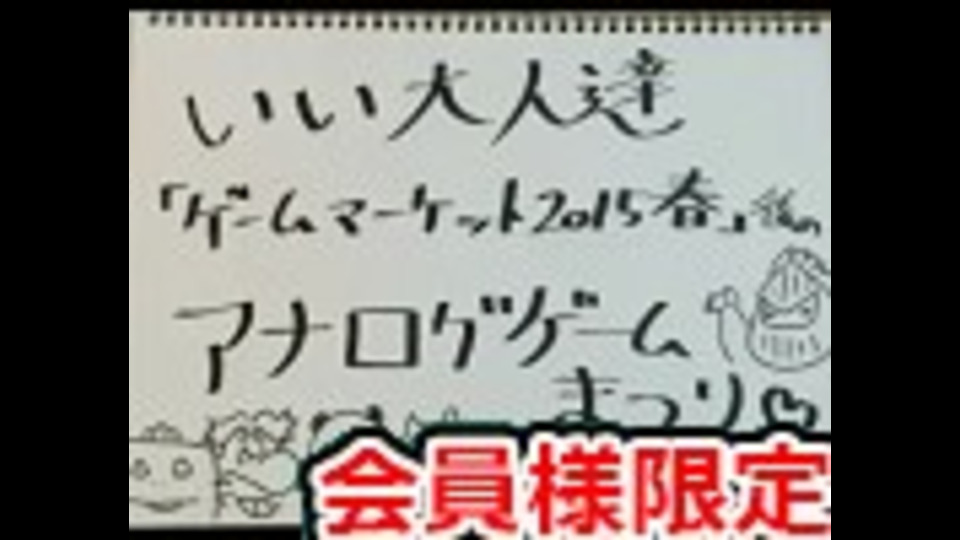 いい大人達
「ゲームマーケット2015春」後の
アナログゲーム
まつり♡
会員様限定